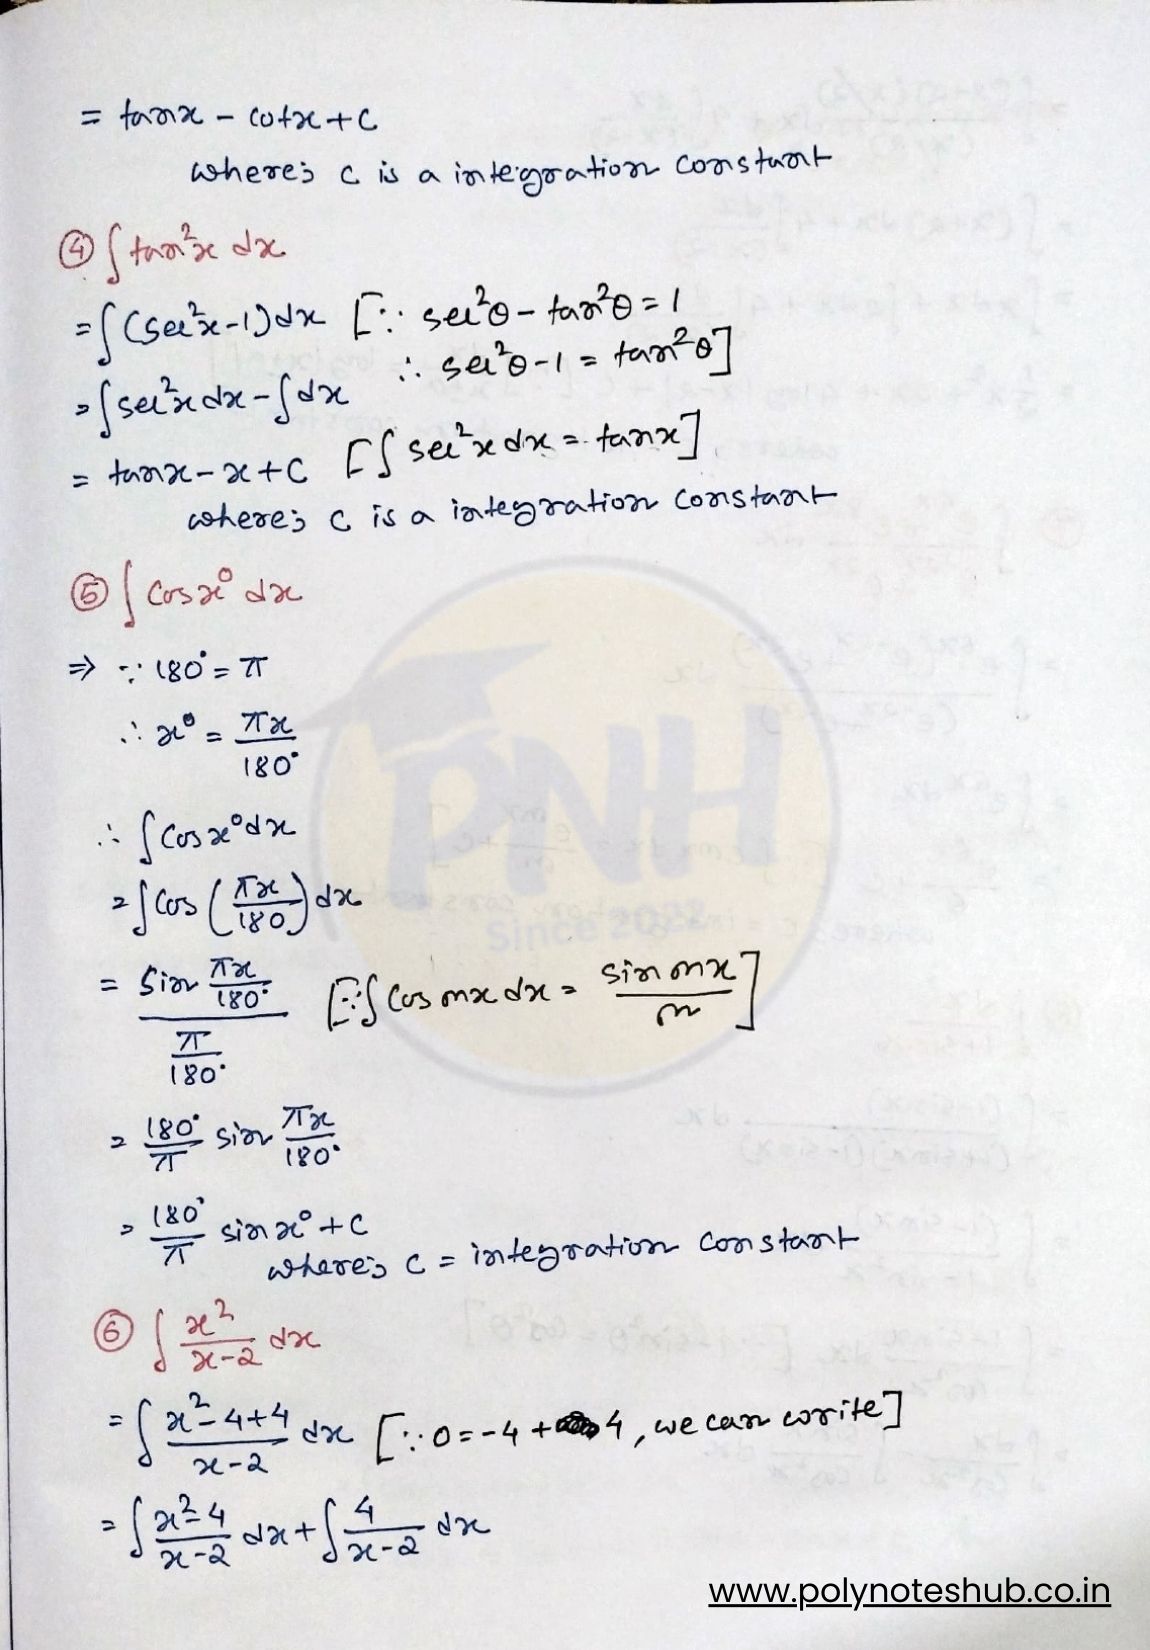 = tanx - cotx + c
where; c is a integration constant
④ ∫ tan²x dx
= ∫ (sec²x - 1) dx [∵ sec²θ - tan²θ = 1
∴ sec²θ - 1 = tan²θ]
= ∫ sec²x dx - ∫ dx
= tanx - x + c [∫ sec²x dx = tanx]
where; c is a integration constant
⑤ ∫ cos x° dx
⇒ ∵ 180° = π
∴ x° = πx/180°
∴ ∫ cos x° dx
= ∫ cos (πx/180) dx
= (sin πx/180°)/(π/180°) [∵ ∫ cos mx dx = sin mx/m]
= 180°/π sin πx/180°
= 180°/π sin x° + c
where; c = integration constant
⑥ ∫ x²/(x-2) dx
= ∫ (x² - 4 + 4)/(x-2) dx [∵ 0 = -4 + 4, we can write]
= ∫ (x² - 4)/(x-2) dx + ∫ 4/(x-2) dx
PNH
Since 2022
www.polynoteshub.co.in